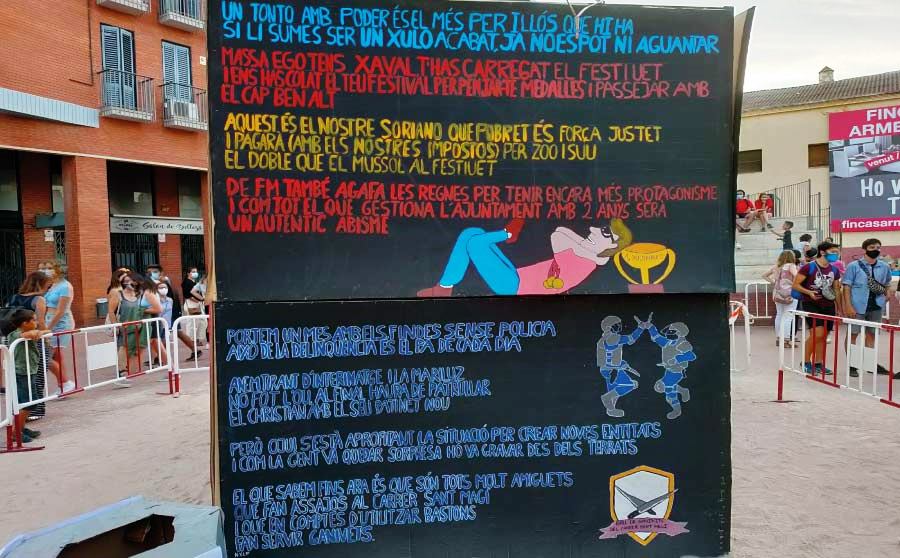 UN TONTO AMB PODER ÉS EL MÉS PERILLÓS QUE HI HA
SI LI SUMES SER UN XULO ACABAT, JA NO ES POT NI AGUANTAR
MASSA EGO TENIS XAVAL T'HAS CARREGAT EL FESTIUET
I ENS HAS COLAT EL TEU FESTIVAL PER PENJAR-TE MEDALLES I PASSEJAR AMB
EL CAP BEN ALT
AQUEST ÉS EL NOSTRE SORIANO QUE POBRET ÉS FORÇA JUSTET
I PAGARÀ (AMB ELS NOSTRES IMPOSTOS) PER ZOO I SUU
EL DOBLE QUE EL MUSSOL AL FESTIUET
DE FM TAMBÉ AGAFA LES REGNES PER TENIR ENCARA MÉS PROTAGONISME
I COM TOT EL QUE GESTIONA L'AJUNTAMENT AMB 2 ANYS SERÀ
UN AUTÈNTIC ABISME
PORTEM UN MES AMB ELS FINDES SENSE POLICIA
AIXÒ DE LA DELINQÜÈNCIA ÉS EL PA DE CADA DIA
ANEM TIRANT D'INTERINATGE I LA MARILUZ
NO POT L'ÒU AL FINAL HAURÀ DE PATRULLAR
EL CHRISTIAN AMB EL SEU PATINET NOU
PERÒ ALGÚ S'ESTÀ APROFITANT LA SITUACIÓ PER CREAR NOVES ENTITATS
I COM LA GENT VA QUEDAR SORPRESA HO VA GRAVAR DES DELS TERRATS
EL QUE SABEM FINS ARA ÉS QUE SÓN TOTS MOLT AMIGUETS
QUE FAN ASSAJOS AL CARRER SANT MAGÍ
I QUE EN COMPTES D'UTILITZAR BASTONS
FAN SERVIR GANIVETS.
BALL DE GANIVETS
DEL CARRER SANT MAGÍ
Salon de Belleza
FINC
ARME
venut /
HO V
T
fincasarn